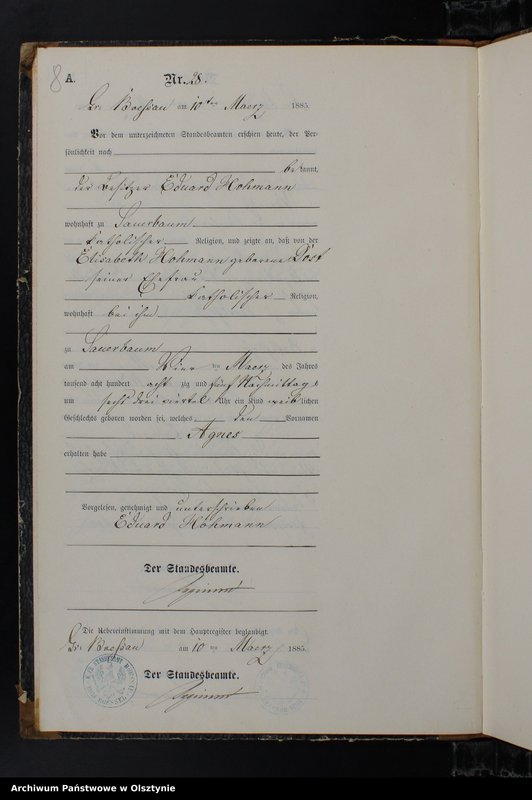 8 A.
Nr. 28.
Gr. Boessau am 10ten Maerz 1885.
Vor dem unterzeichneten Standesbeamten erschien heute, der Per-
sönlichkeit nach
bekannt,
der Besitzer Eduard Hohmann
wohnhaft zu Sauerbaum
katholischer Religion, und zeigte an, daß von der
Elisabeth Hohmann geborene Post
seiner Ehefrau
katholischer Religion,
wohnhaft bei ihm
zu Sauerbaum
am Vier ten Maerz des Jahres
tausend acht hundert achtzig und fünf Nachmittags
um sechs drei viertel Uhr ein Kind weiblichen
Geschlechts geboren worden sei, welches den Vornamen
Agnes
erhalten habe
Vorgelesen, genehmigt und unterschrieben
Eduard Hohmann
Der Standesbeamte.
Die Uebereinstimmung mit dem Hauptregister beglaubigt.
Gr. Boessau am 10 ten Maerz 1885.
Der Standesbeamte.
Archiwum Państwowe w Olsztynie